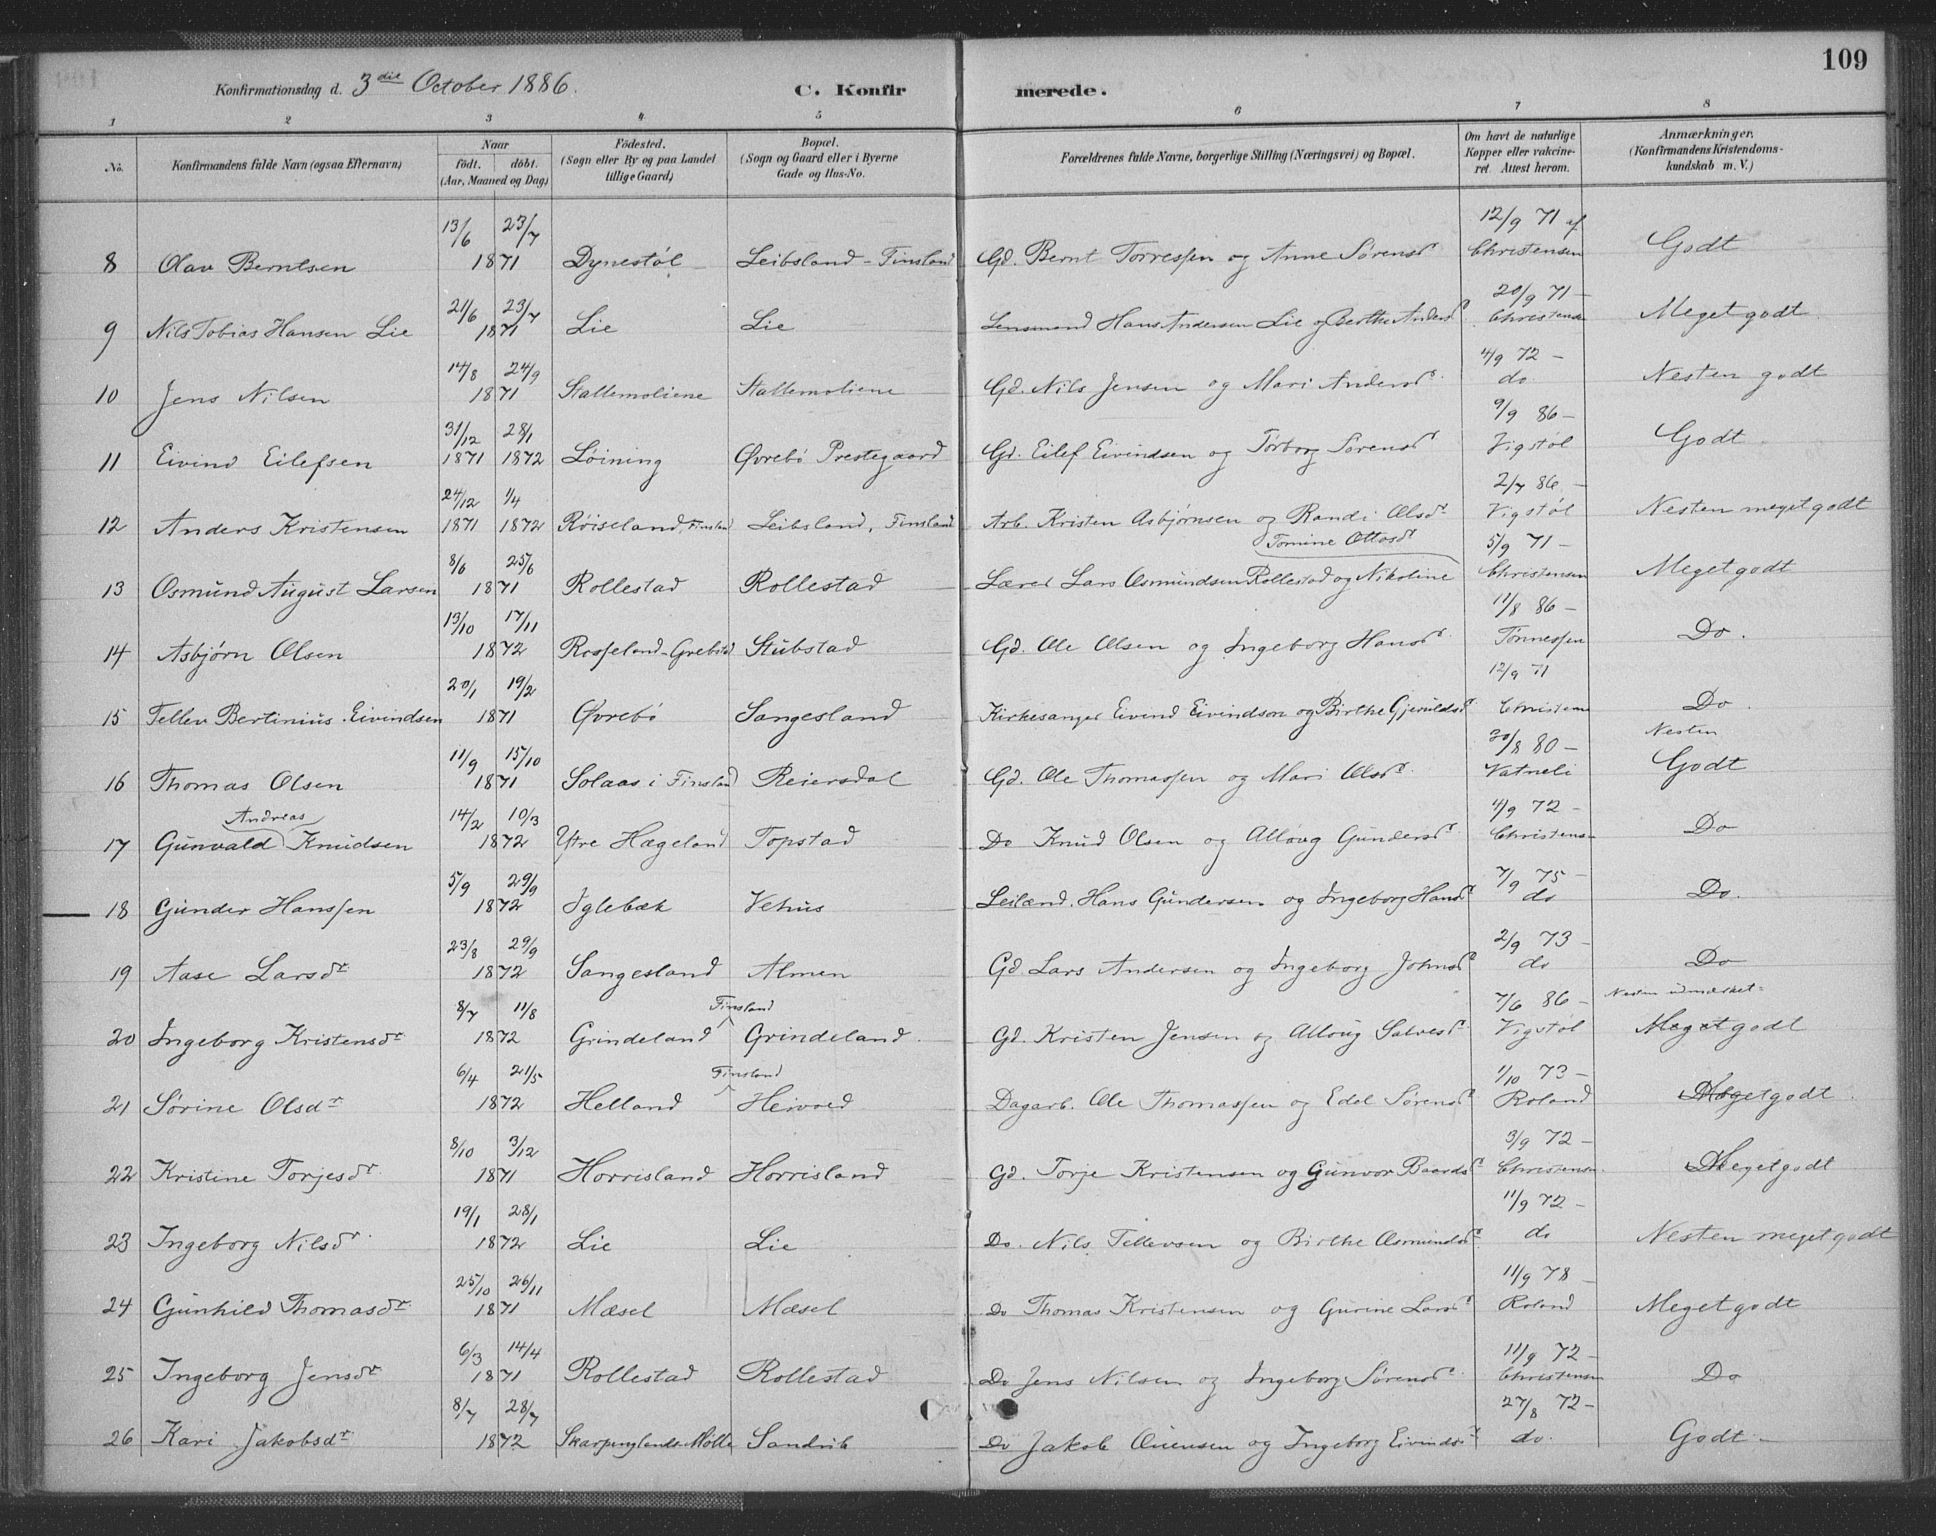 109
Konfirmationsdag d. 3die October 1886. C. Konfirmerede.
1 2 3 4 5 6 7 8
No. Konfirmandens fulde Navn (ogsaa Efternavn) Naar født. døbt. (Aar, Maaned og Dag) Fødested. (Sogn eller By og paa Landet tillige Gaard) Bopæl. (Sogn og Gaard eller i Byerne Gade og Hus-No. Forældrenes fulde Navne, borgerlige Stilling (Næringsvei) og Bopæl. Om havt de naturlige Kopper eller vakcineret. Attest herom. Anmærkninger. (Konfirmandens Kristendomskundskab m. V.)
13/6 23/7 12/9 71 af
8 Olav Berntsen 1871 Dynestøl Leibsland - Finsland Gd. Bernt Torressen og Anne Sørensd Christensen Godt
21/6 23/7 20/9 71 -
9 Nils Tobias Hansen Lie 1871 Lie Lie Lensmand Hans Andersen Lie og Berthe Andersd Christensen Meget godt
14/8 24/9 4/9 72 -
10 Jens Nilsen 1871 Stallemoliene Stallemoliene Gd. Nils Jensen og Mari Andersd do. Nesten godt
31/12 28/1 9/9 86 -
11 Eivind Eilefsen 1871 1872 Løining Øvrebø Prestegaard Gd. Eilef Eivindsen og Torborg Sørensd Vigstøl Godt
24/12 1/4 2/7 86 -
12 Anders Kristensen 1871 1872 Røiseland, Finsland Leibsland, Finsland Arb. Kristen Asbjørnsen og Randi Olsdr Vigstøl Nesten meget godt
8/6 25/6 Tomine Ottosd 5/9 71 -
13 Osmund August Larsen 1871 Rollestad Rollestad Lærer Lars Osmundsen Rollestad og Nikoline Christensen Meget godt
13/10 17/11 11/8 86 -
14 Asbjørn Olsen 1872 Rosseland - Grebstad Stubstad Gd. Ole Olsen og Ingeborg Hansd Tønnessen Do.
20/1 19/2 12/9 71
15 Tellev Bertinius Eivindsen 1871 Øvrebø Sangesland Kirkesanger Eivind Eivindson og Birthe Gjeruldsd Christens Do
11/9 15/10 30/8 80 - Nesten
16 Thomas Olsen 1871 Solaas i Finsland Reiersdal Gd. Ole Thomassen og Mari Olsd Vatneli Godt
Andreas 14/2 10/3 4/9 72 -
17 Gunvald Knudsen 1872 Ytre Hægeland Topstad Do Knud Olsen og Alloug Gundersd Christens Do
5/9 29/9 7/9 75 -
18 Gunder Hanssen 1872 Iglebæk Vehus Leilænd. Hans Gundersen og Ingeborg Hansd do Do.
23/8 29/9 2/9 73 -
19 Aase Larsdr 1872 Sangesland Almen Gd. Lars Andersen og Ingeborg Johnsd do Do
8/7 11/8 Finsland 7/6 86 - Nesten udmærket
20 Ingeborg Kristensdr 1872 Grindeland Grindeland Gd. Kristen Jensen og Alloug Salvesd Vigstøl Meget godt
6/4 21/5 Finsland 1/10 73 -
21 Sørine Olsdr 1872 Helland Heivoed Dagarb. Ole Thomassen og Edel Sørensd Roland Meget godt
8/10 3/12 3/9 72 -
22 Kristine Torjesdr 1871 Horrisland Horrisland Gd. Torje Kristensen og Gunvor Baardsd Christensn Meget godt
19/1 28/1 11/9 72 -
23 Ingeborg Nilsdr 1872 Lie Lie Do. Nils Tellevsen og Birthe Osmundsd do Nesten meget godt
25/10 26/11 11/9 78 -
24 Gunhild Thomasdr 1871 Mæsel Mæsel Do Thomas Kristensen og Gurine Larsd Roland Meget godt
6/3 14/4 11/9 72 -
25 Ingeborg Jensdr 1871 Rollestad Rollestad Do Jens Nilsen og Ingeborg Sørensd Christensn Do
8/7 28/7 27/8 72 -
26 Kari Jakobsdr 1872 Skarpenglands Mølle Sandrib Do Jakob Ouensen og Ingeborg Eivindsd do. Godt